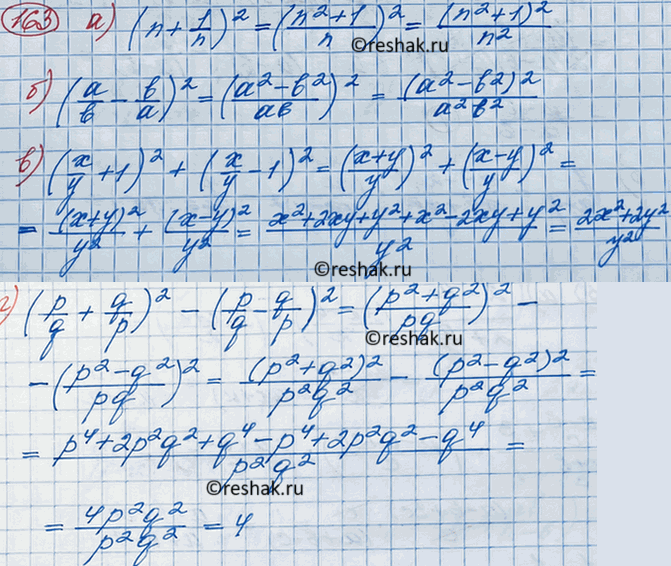 163 а) (n + 1/n)² = ((n²+1)/n)² = (n²+1)²/n²
©reshak.ru
б) (a/b − b/a)² = ((a²−b²)/ab)² = (a²−b²)²/a²b²
в) (x/y + 1)² + (x/y − 1)² = ((x+y)/y)² + ((x−y)/y)² =
= (x+y)²/y² + (x−y)²/y² = (x²+2xy+y²+x²−2xy+y²)/y² = (2x²+2y²)/y²
©reshak.ru
г) (p/q + q/p)² − (p/q − q/p)² = ((p²+q²)/pq)² −
− ((p²−q²)/pq)² = (p²+q²)²/p²q² − (p²−q²)²/p²q² =
= (p⁴+2p²q²+q⁴−p⁴+2p²q²−q⁴)/p²q² =
©reshak.ru
= 4p²q²/p²q² = 4